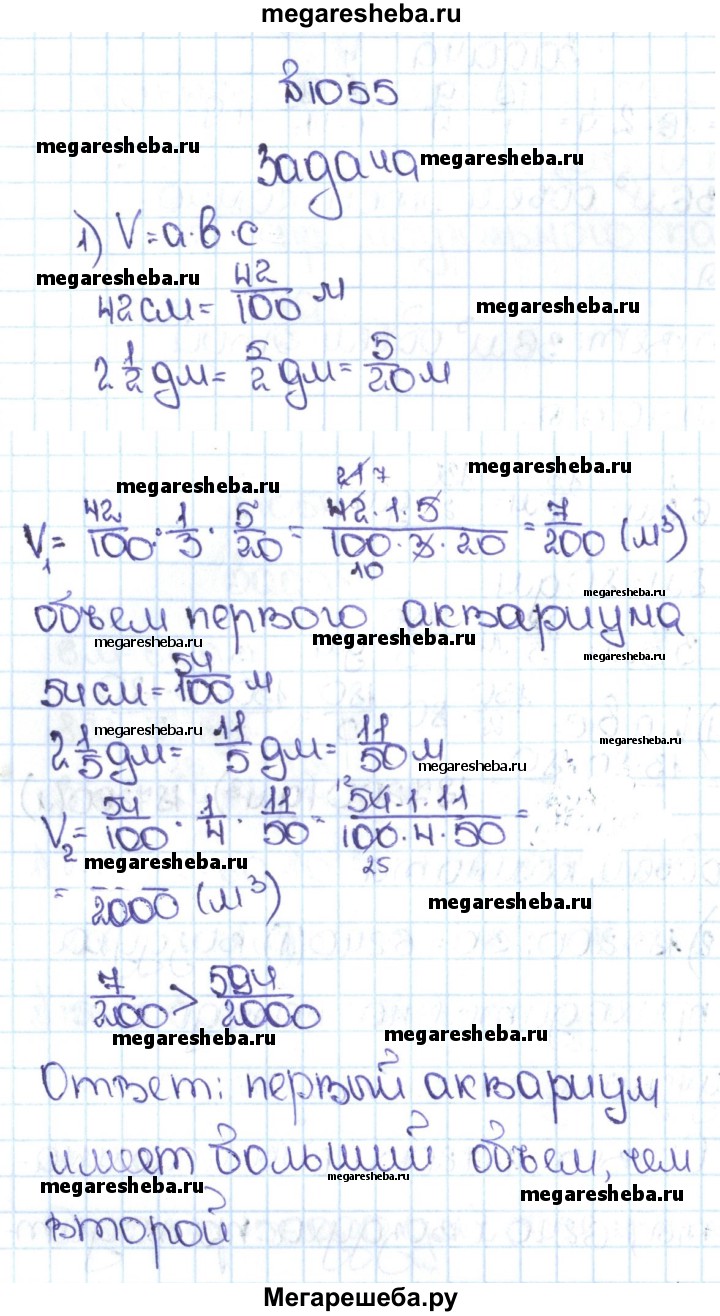 megaresheba.ru
№1055
megaresheba.ru
Задача megaresheba.ru
1) V=a·b·c
megaresheba.ru
42см= 42/100 м
2 1/2 дм= 5/2 дм= 5/20 м
megaresheba.ru
megaresheba.ru
megaresheba.ru
V1= 42/100 · 1/3 · 5/20 = 42·1·5/100·3·20 = 7/200 (м³)
21 7
10
объем первого аквариума
megaresheba.ru megaresheba.ru
megaresheba.ru
54см= 54/100 м
megaresheba.ru
2 1/5 дм= 11/5 дм= 11/50 м
megaresheba.ru
megaresheba.ru
V2= 54/100 · 1/4 · 11/50 = 54·1·11/100·4·50 =
25
megaresheba.ru
= 2000 (м³)
megaresheba.ru
7/200 > 594/2000
megaresheba.ru megaresheba.ru
Ответ: первый аквариум
имеет больший объем, чем
megaresheba.ru megaresheba.ru
megaresheba.ru
второй
Мегарешеба.ру